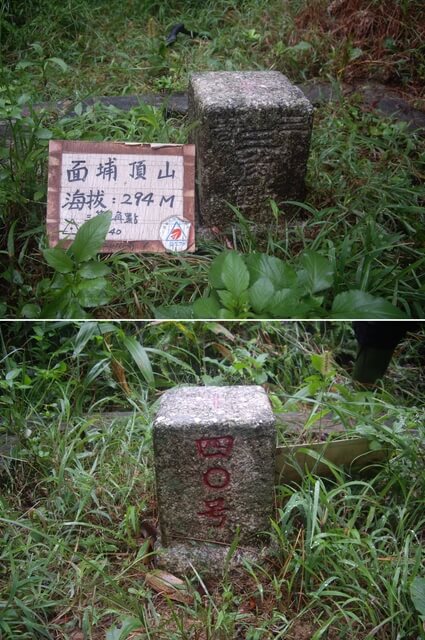 面埔頂山
海拔：294M
40
四
〇
号